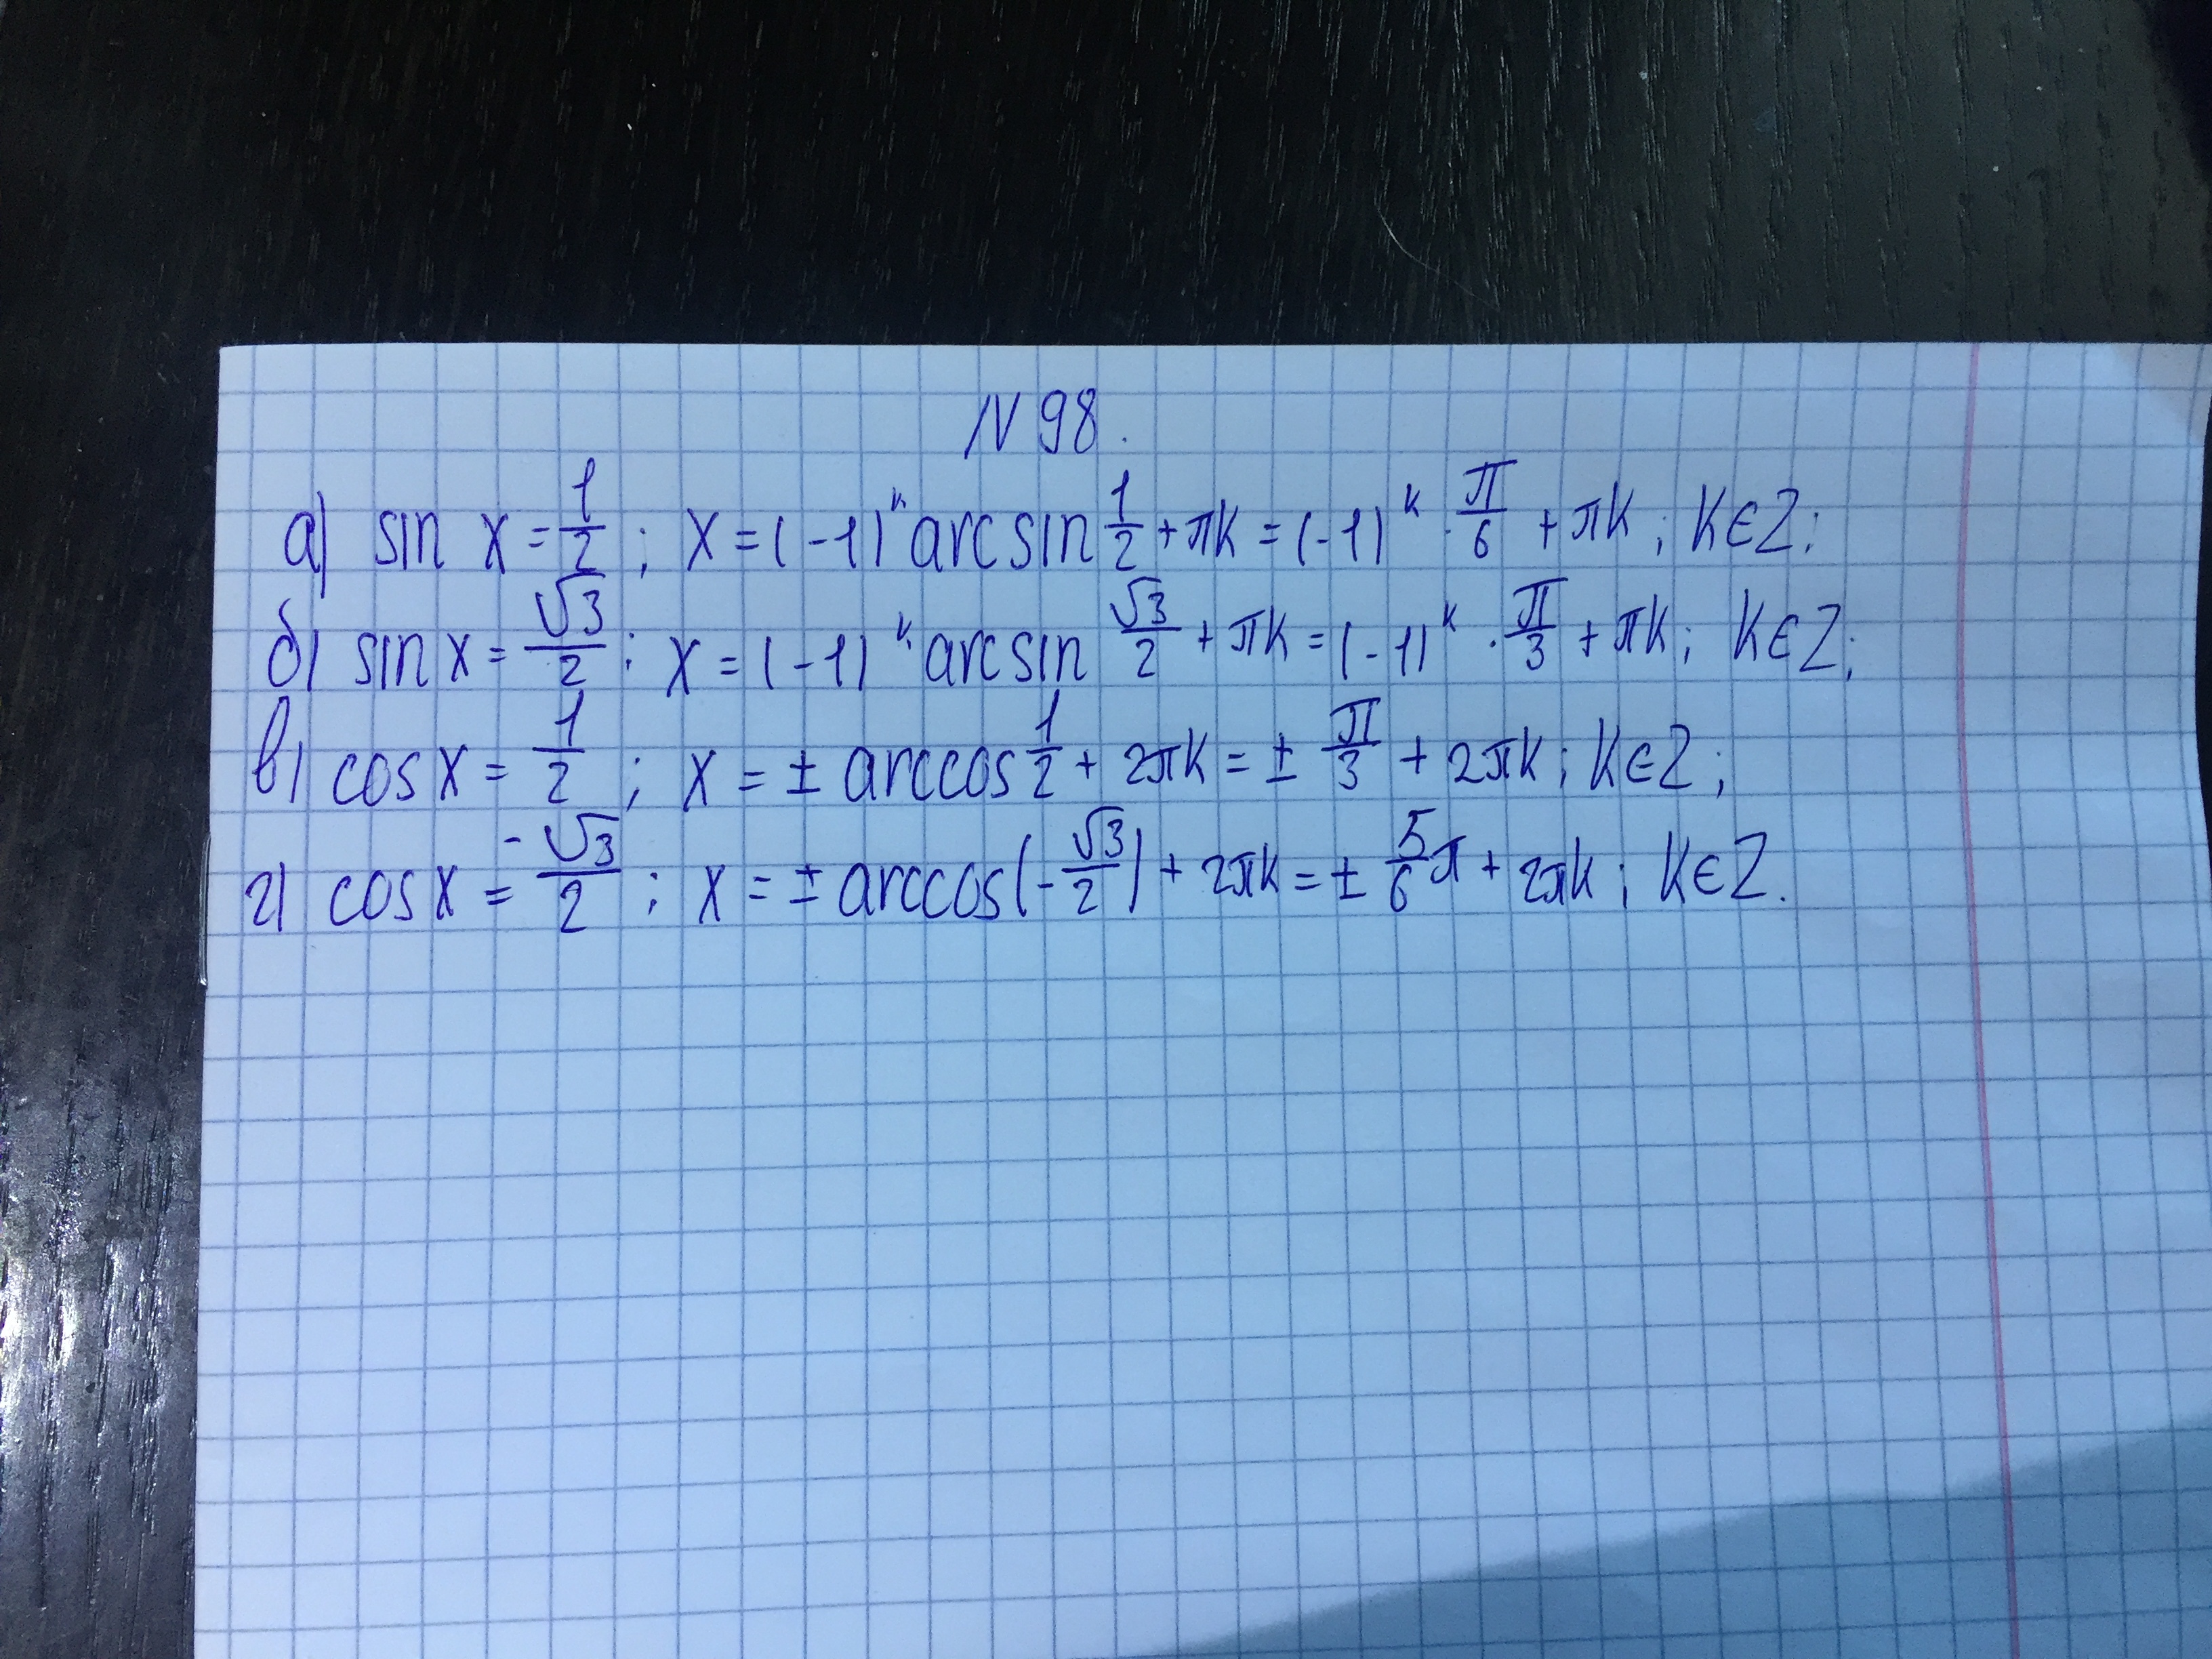 N 98.
а) sin x = 1/2 ; x = (-1)^k arcsin 1/2 + πk = (-1)^k · π/6 + πk ; k ∈ Z;
б) sin x = √3/2 ; x = (-1)^k arcsin √3/2 + πk = (-1)^k · π/3 + πk ; k ∈ Z;
в) cos x = 1/2 ; x = ± arccos 1/2 + 2πk = ± π/3 + 2πk ; k ∈ Z;
г) cos x = -√3/2 ; x = ± arccos(-√3/2) + 2πk = ± 5/6 π + 2πk ; k ∈ Z.